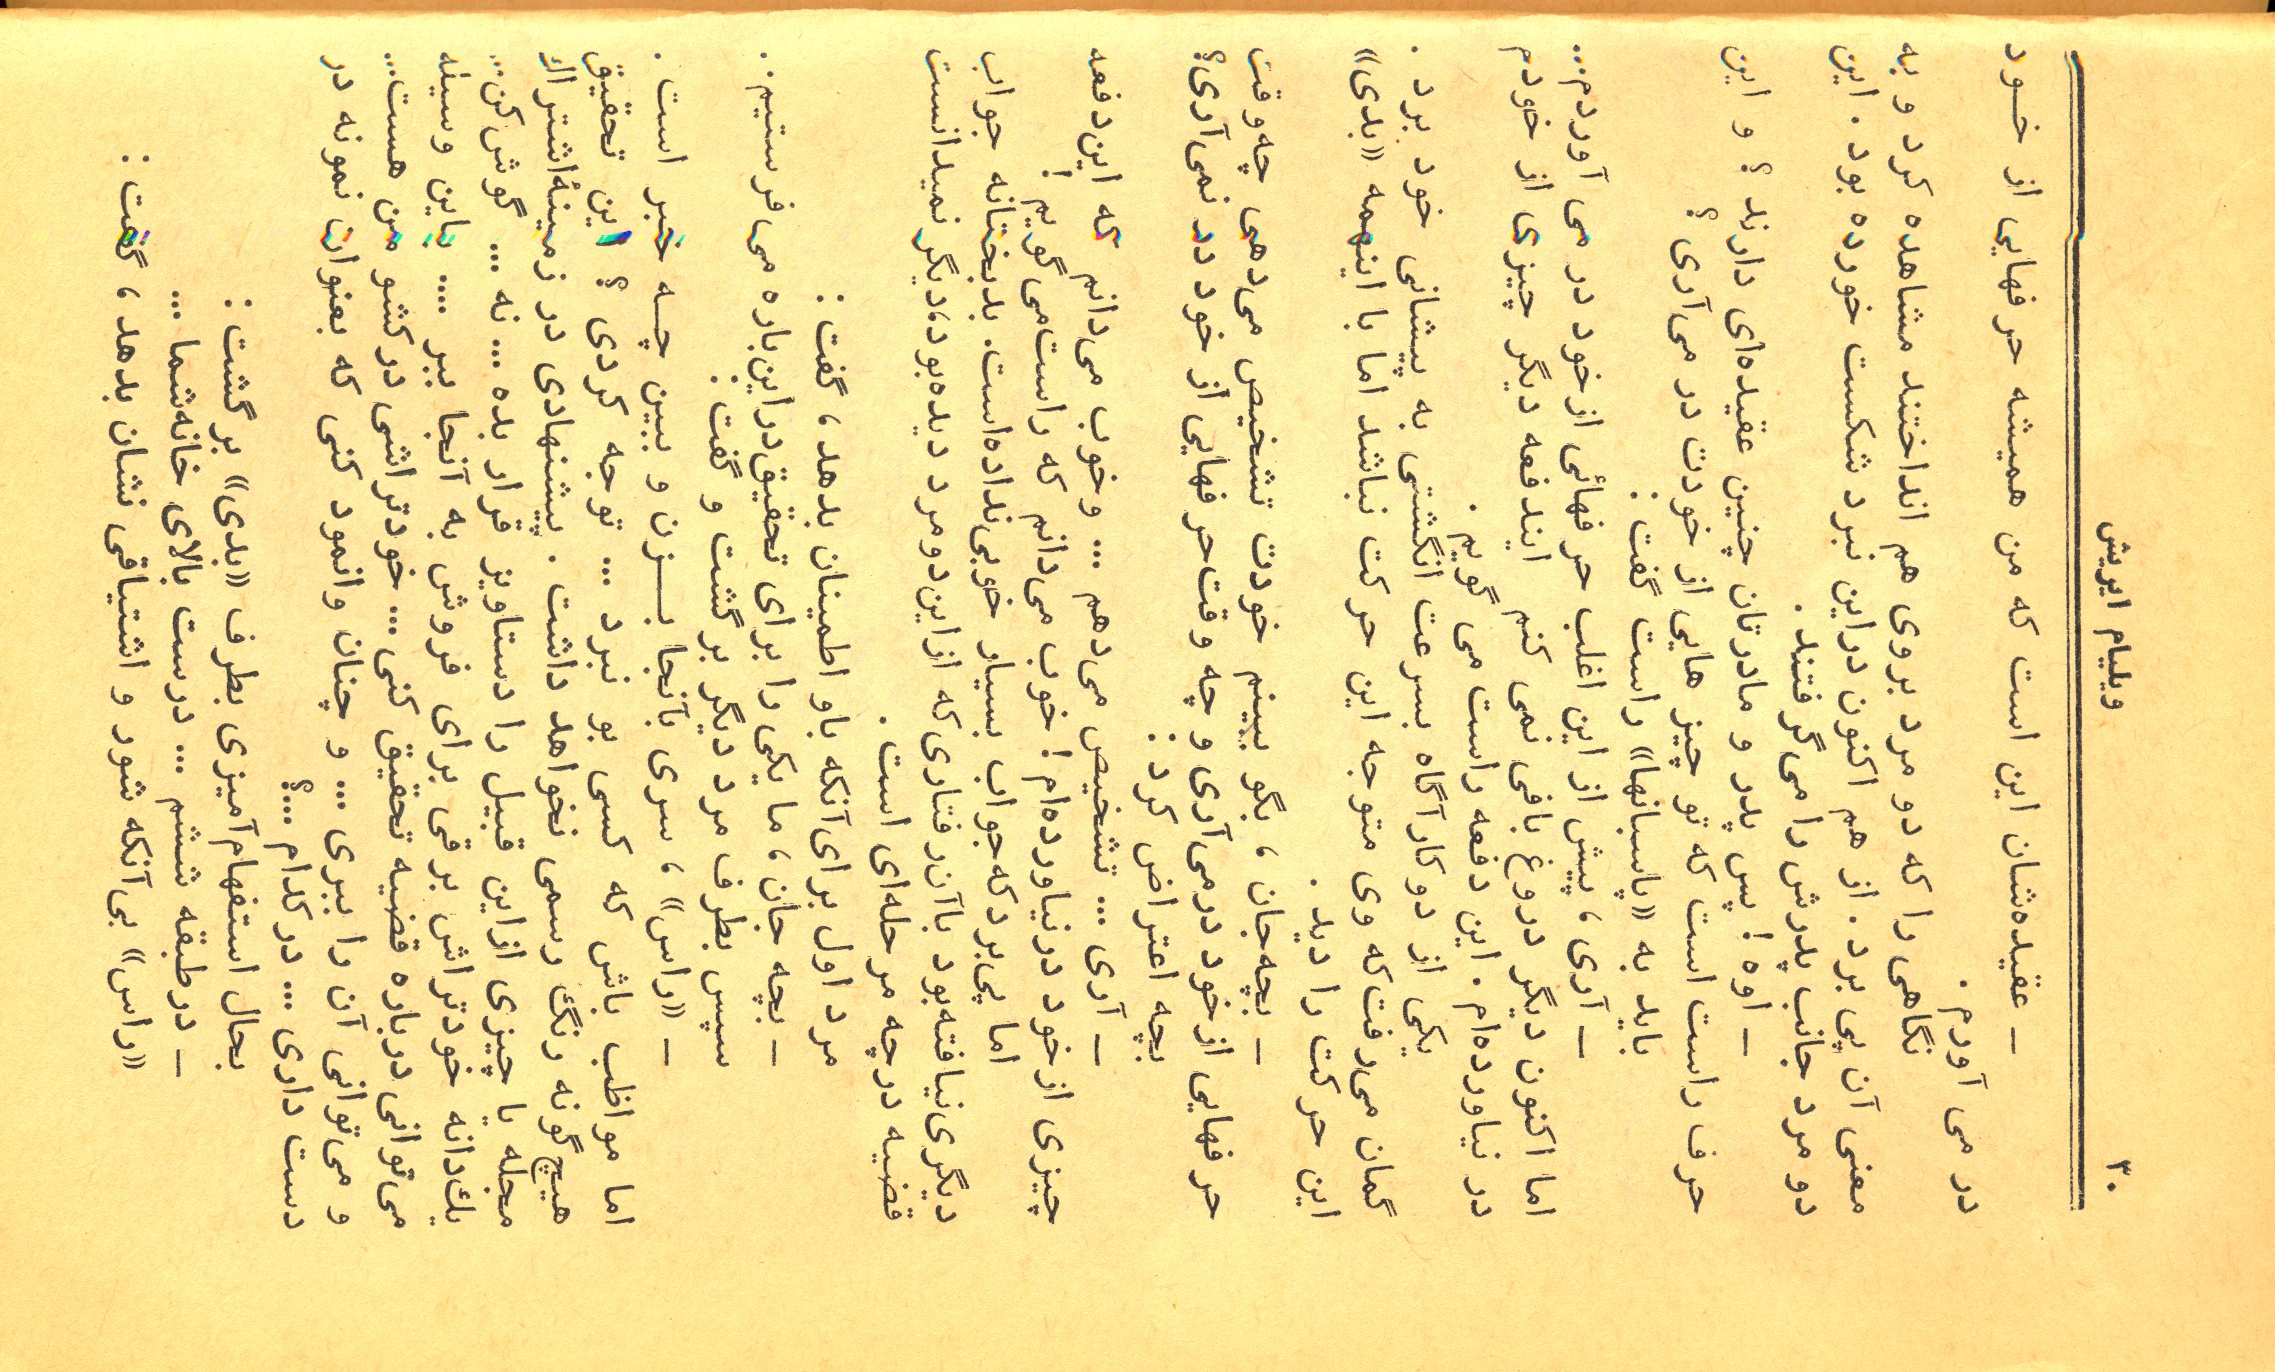 ۳۰
ویلیام ایریش
ـ عقیده‌شان این است که من همیشه حرفهایی از خـود
در می آورم .
نگاهی را که دو مرد بروی هم انداختند مشاهده کرد و به
معنی آن پی برد . از هم اکنون دراین نبرد شکست خورده بود . این
دو مرد جانب پدرش را می‌گرفتند .
ـ اوه ! پس پدر و مادرتان چنین عقیده‌ای دارند ؟ و این
حرف راست است که تو چیز هایی از خودت در می‌آری ؟
باید به «پاسبانها» راست گفت :
ـ آری ، پیش از این اغلب حرفهائی ازخود در می آوردم...
اما اکنون دیگر دروغ بافی نمی کنم ایندفعه دیگر چیزی از خودم
در نیاورده‌ام . این دفعه راست می گویم .
یکی از دو کارآگاه بسرعت انگشتی به پیشانی خود برد .
گمان می‌رفت‌که وی متوجه این حرکت نباشد اما با اینهمه «بدی»
این حرکت را دید .
ـ بچه‌جان ، بگو ببینم خودت تشخیص می‌دهی چه‌وقت
حرفهایی ازخود درمی‌آری و چه وقت‌حرفهایی از خود در نمی‌آری؟
بچه اعتراض کرد :
ـ آری ... تشخیص می‌دهم ... وخوب می‌دانم که این‌دفعه
چیزی ازخود درنیاورده‌ام ! خوب می‌دانم که راست‌می‌گویم !
اما پی‌برد که‌جواب بسیار خوبی‌نداده‌است. بدبختانه جواب
دیگری‌نیافته‌بود باآن‌رفتاری‌که ازاین‌دومرد دیده‌بود،دیگرنمیدانست
قضیه درچه مرحله‌ای است .
مرد اول برای‌آنکه باو اطمینان بدهد ، گفت :
ـ بچه جان ، ما یکی را برای تحقیق‌دراین‌باره می‌فرستیم. .
سپس بطرف مرد دیگر برگشت و گفت :
ـ «راس» ، سری بآنجا بــزن و ببین چــه خبر است .
اما مواظب باش که کسی بو نبرد ... توجه کردی ؟ این تحقیق
هیچ‌گونه رنگ رسمی نخواهد داشت . پیشنهادی در زمینهٔ‌اشتراك
مجله یا چیزی ازاین قبیل را دستاویز قرار بده ... نه ... گوش‌کن...
یك‌دانه خودتراش برقی برای فروش به آنجا ببر .... باین وسیله
می‌توانی درباره قضیه تحقیق کنی ... خودتراشی درکشو من هست...
و می‌توانی آن را ببری ... و چنان وانمود کنی که بعنوان نمونه در
دست داری ... در کدام ...؟
بحال استفهام‌آمیزی بطرف «بدی» برگشت :
ـ درطبقه ششم ... درست بالای خانه‌شما ...
«راس» بی‌آنکه شور و اشتیاقی نشان بدهد ، گفت :